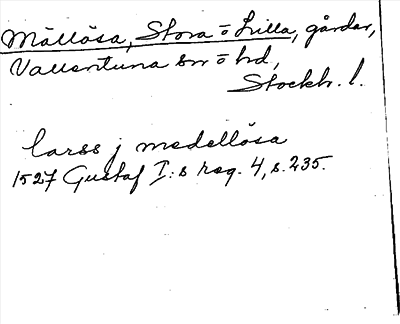 Mällösa, Stora o Lilla, gårdar,
Vallentuna sn o hd,
Stockh. l.
larss j medellösa
1527 Gustaf I:s reg. 4, s. 235.